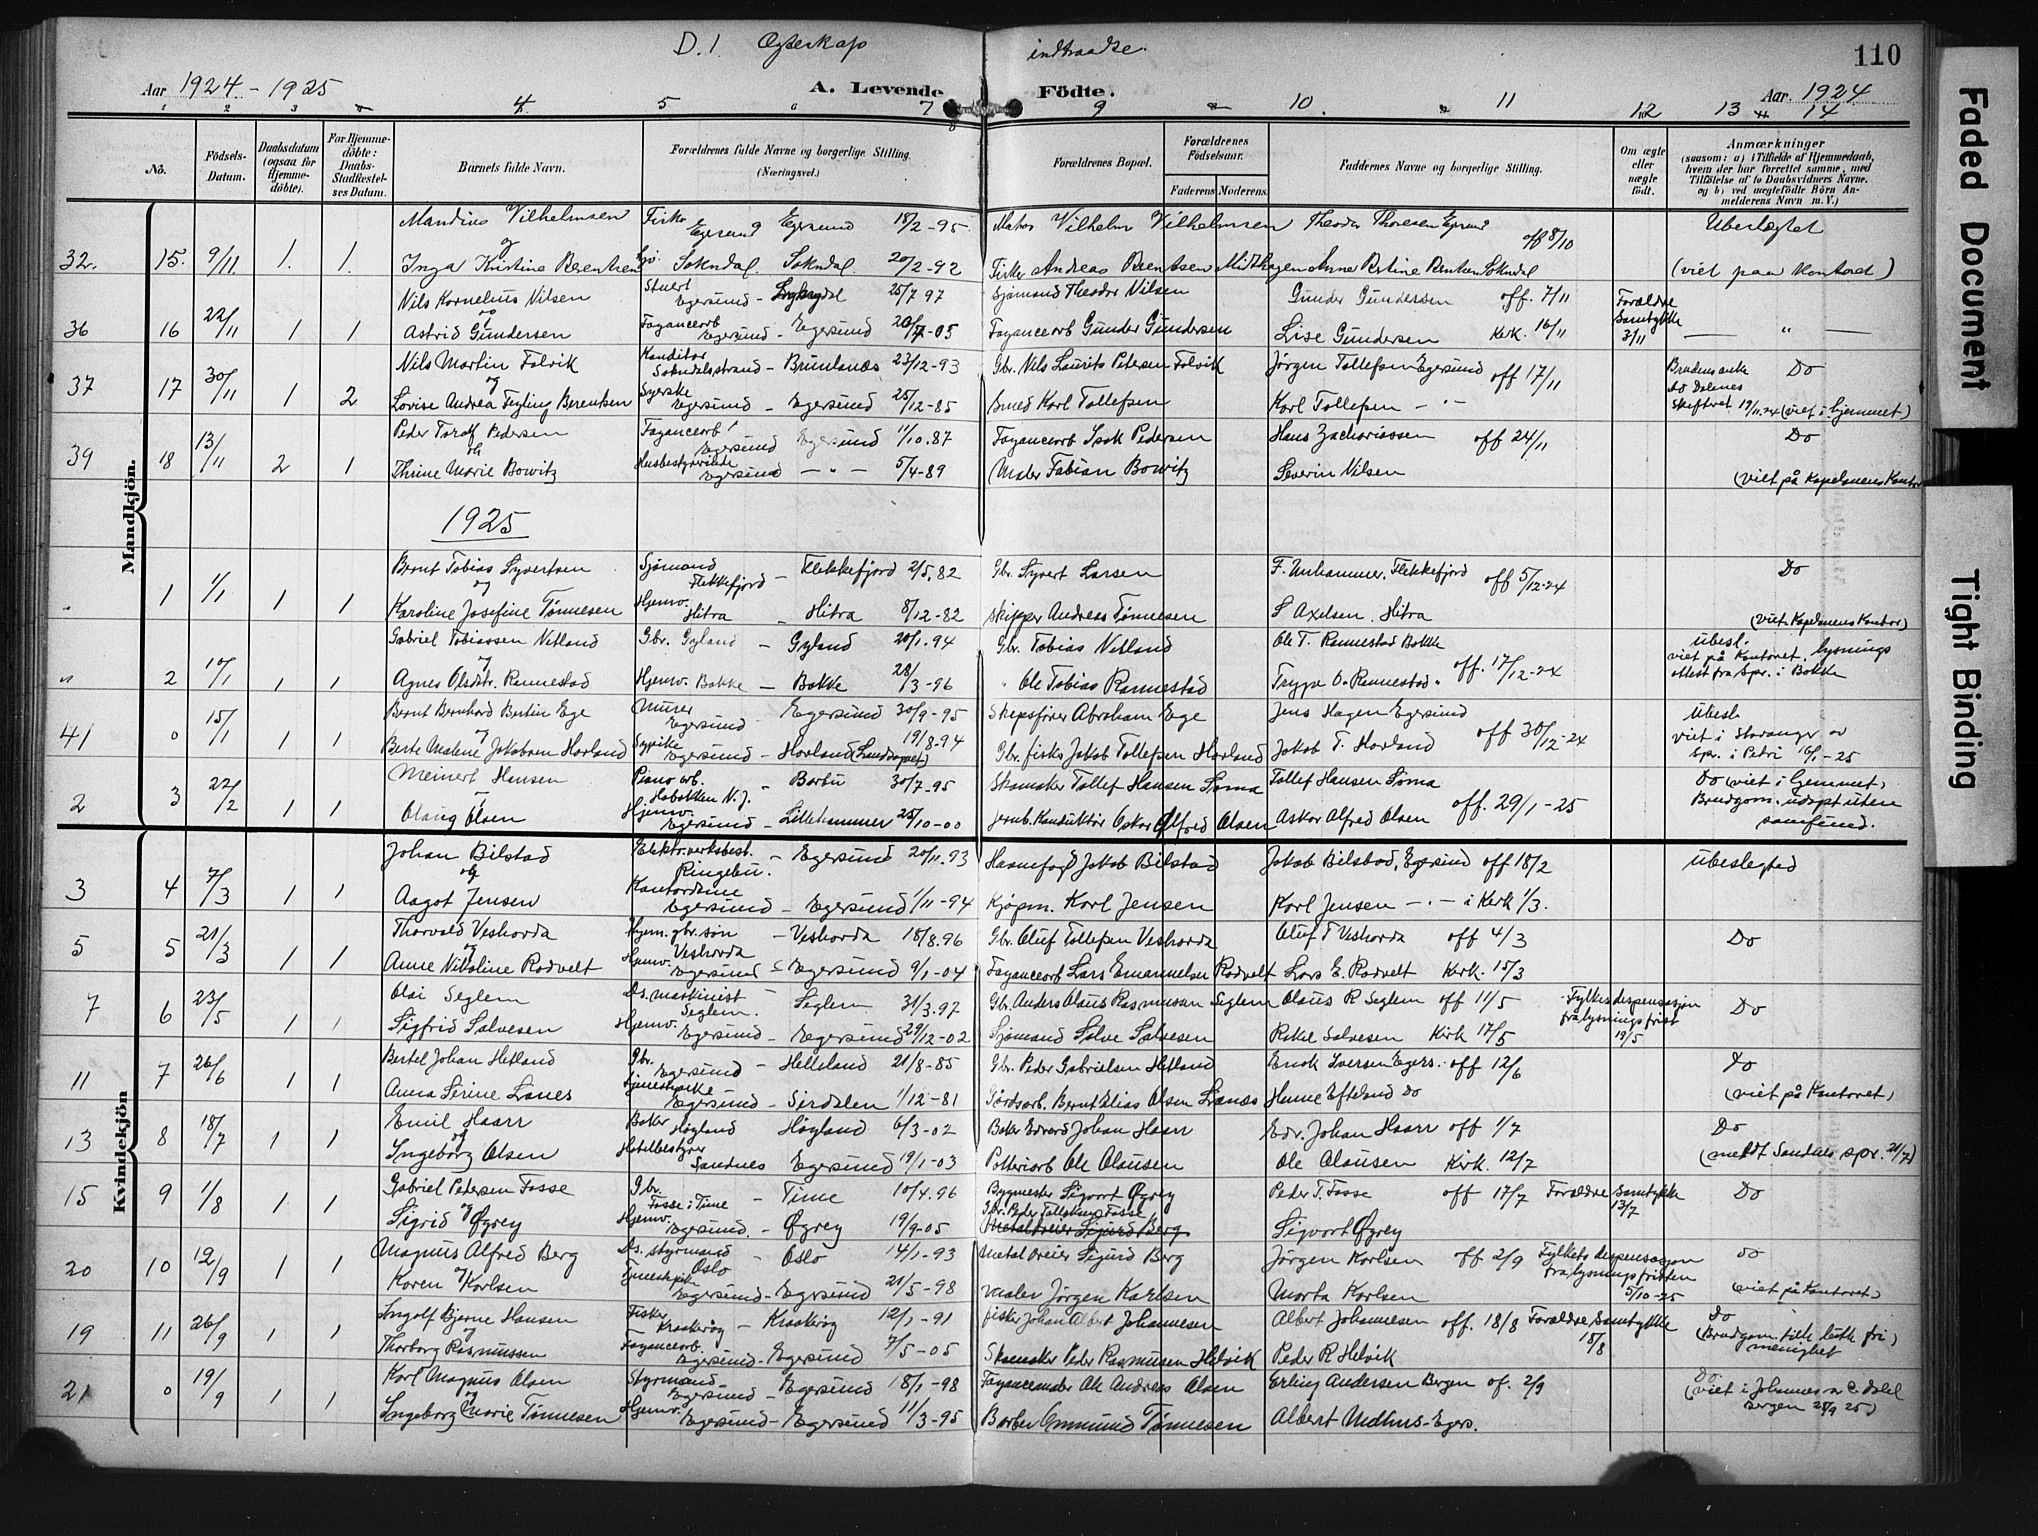 D.1 Ægteskap indtraadte.
110
Aar 1924 - 1925
A. Levende Födte.
Aar 1924
1 2 3 4 5 6 7 8 9 10. 11 12 13 14
No.
Födsels-Datum.
Daabsdatum (ogsaa for Hjemmedöbte).
For Hjemmedöbte: Daabs-Stadfæstelses Datum.
Barnets fulde Navn.
Forældrenes fulde Navne og borgerlige Stilling. (Næringsvei.)
Forældrenes Bopæl.
Forældrenes Födselsaar.
Faderens Moderens.
Faddernes Navne og borgerlige Stilling.
Om ægte eller uægte födt.
Anmærkninger
(saasom: a) i Tilfælde af Hjemmedaab, hvem der har forrettet samme, med Tilföielse af to Daabsvidners Navne, og b) ved uægtefödte Börn Anmelderens Navn m. V.)
Mandkjön.
Kvindekjön
Faded Document
Tight Binding
Mandius Vilhelmsen Fisker Egersund Egersund 18/2-95 Vilhelm Vilhelmsen Theodor Thoresen Egersund off 8/10 Ubeslægtet
32. 15. 9/11 1. 1. og
Inga Kristine Berentsen Sokndal Sokndal 20/2-92 Fisker Andreas Berntsen Midthagen Sokndal (viet paa Kontoret)
Nils Kornelius Nilsen Stuert Egersund 25/7 97 Sjömand Theodor Nilsen Gunder Gundersen off. 7/11 Forældre Samtykke 3/11
36 16 22/11 1 1 og
Astrid Gundersen Fayancearb Egersund - Egersund 20/7-05 Fayancearb Gunder Gundersen Lise Gundersen Kirk. 16/11 " —
Nils Martin Falvik Konditor Sokndalsstrand - Brunlanæs 23/12-93 Gbr. Nils Laurits Petersen Falvik Jörgen Tollefsen Egersund off 17/11 Do
37 17 30/11 1 2 og
Lovise Andrea Teyling Berentsen Syerske Egersund - Egersund 25/12-85 Smed Karl Tollefsen Karl Tollefsen - " - Brudens enke Dalenes Skifteret 19/11.24 (viet i hjemmet)
Peder Toralf Pedersen Fayancearb Egersund Egersund 1/10.87 Fayancearb Isak Pedersen Hans Zachariassen off 24/11 Do
39 18 13/11 2 1 og
Thrine Marie Bowitz Husbestyrerinde Egersund - " - 5/4-89 Maler Fabian Bowitz Severin Nilsen (viet på Kapelanens Kontor
1925
Bernt Tobias Syvertsen Sjömand Flekkefjord - Flekkefjord 2/5.82 Gbr. Syvert Larsen F. Unhammer, Flekkefjord off 5/12-24 Do
" 1 1/1 1 1 og
Karoline Josefine Tönnesen Hjemv. Hitra - Hitra 8/12-82 Skipper Andreas Tönnesen S Axelsen Hitra (viet Kapelanens Kontor)
Gabriel Tobiassen Netland Gbr. Gyland - Gyland 20/1.94 Gbr. Tobias Netland Ole T. Rannestad Bakke off. 17/12-24 Ubesl.
" 2 10/1 1 1 og
Agnes Rannestad Hjemv. Bakke - Bakke 28/3-96 " Ole Tobias Rannestad Trygve O. Rannestad " viet på Kontoret lysnings attest fra Spr. i Bakke
Bernt Bernhard Bertin Ege Murer Egersund Egersund 30/9-95 Skipsförer Abraham Ege Jens Hagen Egersund off 30/12-24 Ubesl.
41 0 15/1 1 1 og
Berte Malene Jakobsen Hovland Sypike Egersund - Hovland (Landsognet) 19/8.94 Gbr. fisker Jakob Tollefsen Hovland Jakob T. Hovland viet i Stavanger av Spr. i Petri 16/1-25
Meinert Hansen Piano arb. Hoboken N.J. - Barbu 30/7-95 Skomaker Tollef Hansen Löma Tollef Hansen Löma off. 29/1-25 Do (viet i hjemmet)
2 3 22/2 1 1
Olaug Olsen Hjemv. Egersund - Lillehammer 25/10-00 Jernb. Konduktör Oskar Alfred Olsen Oskar Alfred Olsen Brudgom. udöpt uten samfund.
Johan Bilstad Elektr.verksbest. Ringebu. - Egersund 20/11.93 Havnefogd Jakob Bilstad Jakob Bilstad, Egersund off 18/2 ubeslegted
3 4 7/3 1 1 og
Aagot Jensen Kontordame Egersund - Egersund 1/11-94 Kjöpm. Karl Jensen Karl Jensen - " - i Kirk 1/3.
Thorvald Veshovda Hjem. gbr. sön Veshovda - Veshovda 18/8.96 Gbr. Oluf Tollefsen Veshovda Oluf T Veshovda off 4/3 Do
5 5 21/3 1 1 og
Anne Nikoline Rodvelt Hjemv. Egersund - Egersund 9/1-04 Fayancearb Lars Emanuelsen Rodvelt Lars E. Rodvelt Kirk. 15/3
Olai Seglem Ds. maskinist Seglem. - Seglem 31/3.97 Gbr. Anders Olaus Rasmussen Seglem Olaus R Seglem off 11/5 Fylkesdispensasjon fra lysningsfrist 19/5 Do
7 6 23/5 1 1
Sigfrid Salvesen Hjemv. Egersund - Egersund 29/12-02 Sjömand Salve Salvesen Rakel Salvesen Kirk 17/5
Bertel Johan Hetland Gbr. Egersund - Helleland 21/8-85 Gbr. Peder Gabrielsen Hetland Enok Iversen Egers. off 12/6 Do
11 7 26/6 1 1
Anna Serine Lanes Tjenestepike Egersund - Sirdalen 1/12-81 Gårdsarb. Bernt Elias Olsen Lanes Hanne Efteland Do (viet på Kontoret)
Emil Haarr Baker Høyland Høyland 6/3-02 Baker Edvard Johan Haarr Edv. Johan Haarr off 1/7 Do
13 8 18/7 1 1 og
Ingeborg Olsen Hotelbestyrer Sandnes Egersund 19/1-03 Potteriarb Ole Olausen Ole Olausen Kirk. 12/7 (meldt Sandnes spr. 21/7)
Gabriel Pedersen Fosse Gbr. Fosse i Time - Time 10/4.96 Bygmester Sigvart Øgrey Peder T. Fosse off 17/7 Forældre Samtykke 13/7 Do
15 9 1/8 1 1 og
Sigrid Øgrey Hjemv. Egersund. - Øgrey 19/9-05 Gbr. Peder Tollefsen Fosse Metaldreier Sigurd Berg Sigvart Øgrey
Magnus Alfred Berg Ds. styrmand Oslo - Oslo 14/1-93 Metaldreier Sigurd Berg Jörgen Karlsen off 2/9 Fylkets dispensasjon fra lysningsfristen 5/10-25 Do
20 10 12/9 1 1 og
Karen Karlsen Tjenestepike Egersund - Egersund 21/5-98 Maler Jörgen Karlsen Marta Karlsen (viet på Kontoret)
Ingolf Bjerne Hansen Fisker Kraakeröy - Kraakeröy 12/1-91 fisker Johan Albert Johannesen Albert Johannesen off. 18/8 Forældre Samtykke 18/8 Do
19 11 26/9 1 1 og
Thorborg Rasmussen Fayancearb. Egersund - Egersund 7/5-05 Skomaker Peder Rasmussen Helvik Peder R Helvik (Brudgom. luth. fri menighet)
Karl Magnus Olsen Styrmand Egersund - Egersund 18/1-98 Fayancemaler Ole Andreas Olsen Erling Andersen Bergen of. 2/9 Do
21 0 19/9 1 1 og
Ingeborg Marie Tönnesen Hjemv. Egersund - Egersund 11/3-95 Barber Ommund Tönnesen Albert Midthus-Egers. (viet i Johannes Bergen 25)